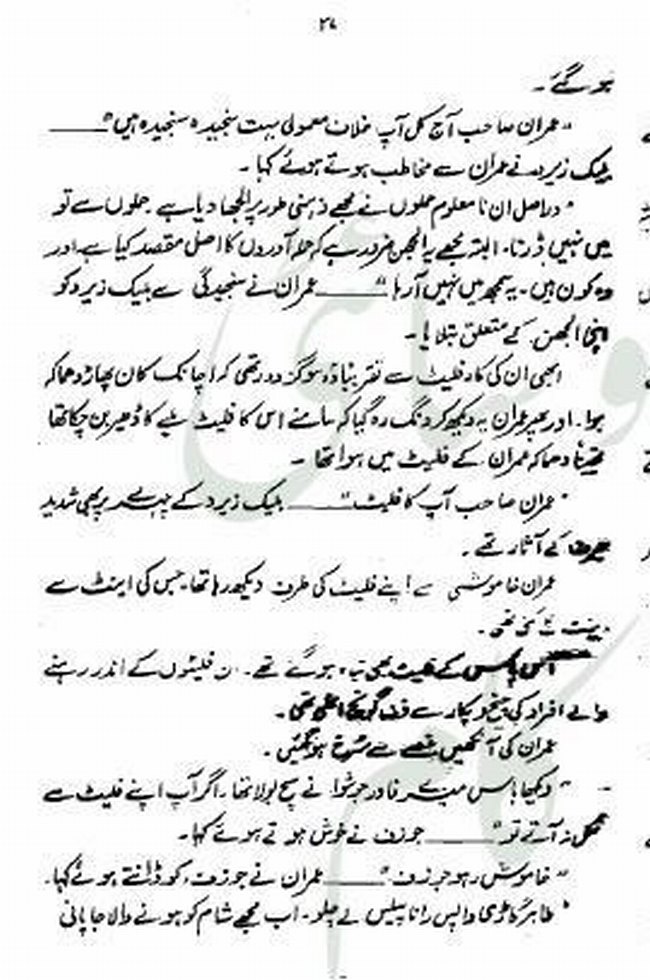 ۲۷
ہو گئے ۔
" عمران صاحب آج کل آپ خلاف معمول بہت سنجیدہ سنجیدہ ہیں " ـــــــ
بلیک زیرو نے عمران سے مخاطب ہوتے ہوئے کہا ۔
" دراصل ان نا معلوم حملوں نے مجھے ذہنی طور پر الجھا دیا ہے ۔ حملوں سے تو
میں نہیں ڈرتا ۔ البتہ مجھے یہ الجھن ضرور ہے کہ حملہ آوروں کا اصل مقصد کیا ہے اور
وہ کون ہیں ۔ یہ سمجھ میں نہیں آ رہا " ـــــــ عمران نے سنجیدگی سے بلیک زیرو کو
اپنی الجھن کے متعلق بتلایا ۔
ابھی ان کی کار فلیٹ سے تقریباً دو سو گز دور تھی کہ اچانک کان پھاڑ دھماکہ
ہوا ۔ اور پھر عمران یہ دیکھ کر دنگ رہ گیا کہ سامنے اس کا فلیٹ ملبے کا ڈھیر بن چکا تھا
یقیناً دھماکہ عمران کے فلیٹ میں ہوا تھا ۔
" عمران صاحب آپ کا فلیٹ " ـــــــ بلیک زیرو کے چہرے پر بھی شدید
حیرت کے آثار تھے ۔
عمران خاموشی سے اپنے فلیٹ کی طرف دیکھ رہا تھا ۔ جس کی اینٹ سے
اینٹ بج گئی تھی ۔
آس پاس کے فلیٹ بھی تباہ ہو گئے تھے ۔ ان فلیٹوں کے اندر رہنے
والے افراد کی چیخ و پکار سے فضا گونج اٹھی تھی ۔
عمران کی آنکھیں غصے سے سرخ ہو گئیں ۔
" دیکھا باس میرے فادر جوشوا نے سچ بولا تھا ۔ اگر آپ اپنے فلیٹ سے
نکل نہ آتے تو " ـــــــ جوزف نے خوش ہوتے ہوئے کہا ۔
" خاموش رہو جوزف " ـــــــ عمران نے جوزف کو ڈانٹتے ہوئے کہا ۔
" طاہر گاڑی واپس رانا پیلس لے چلو ۔ اب مجھے شام کو ہونے والا جاپانی